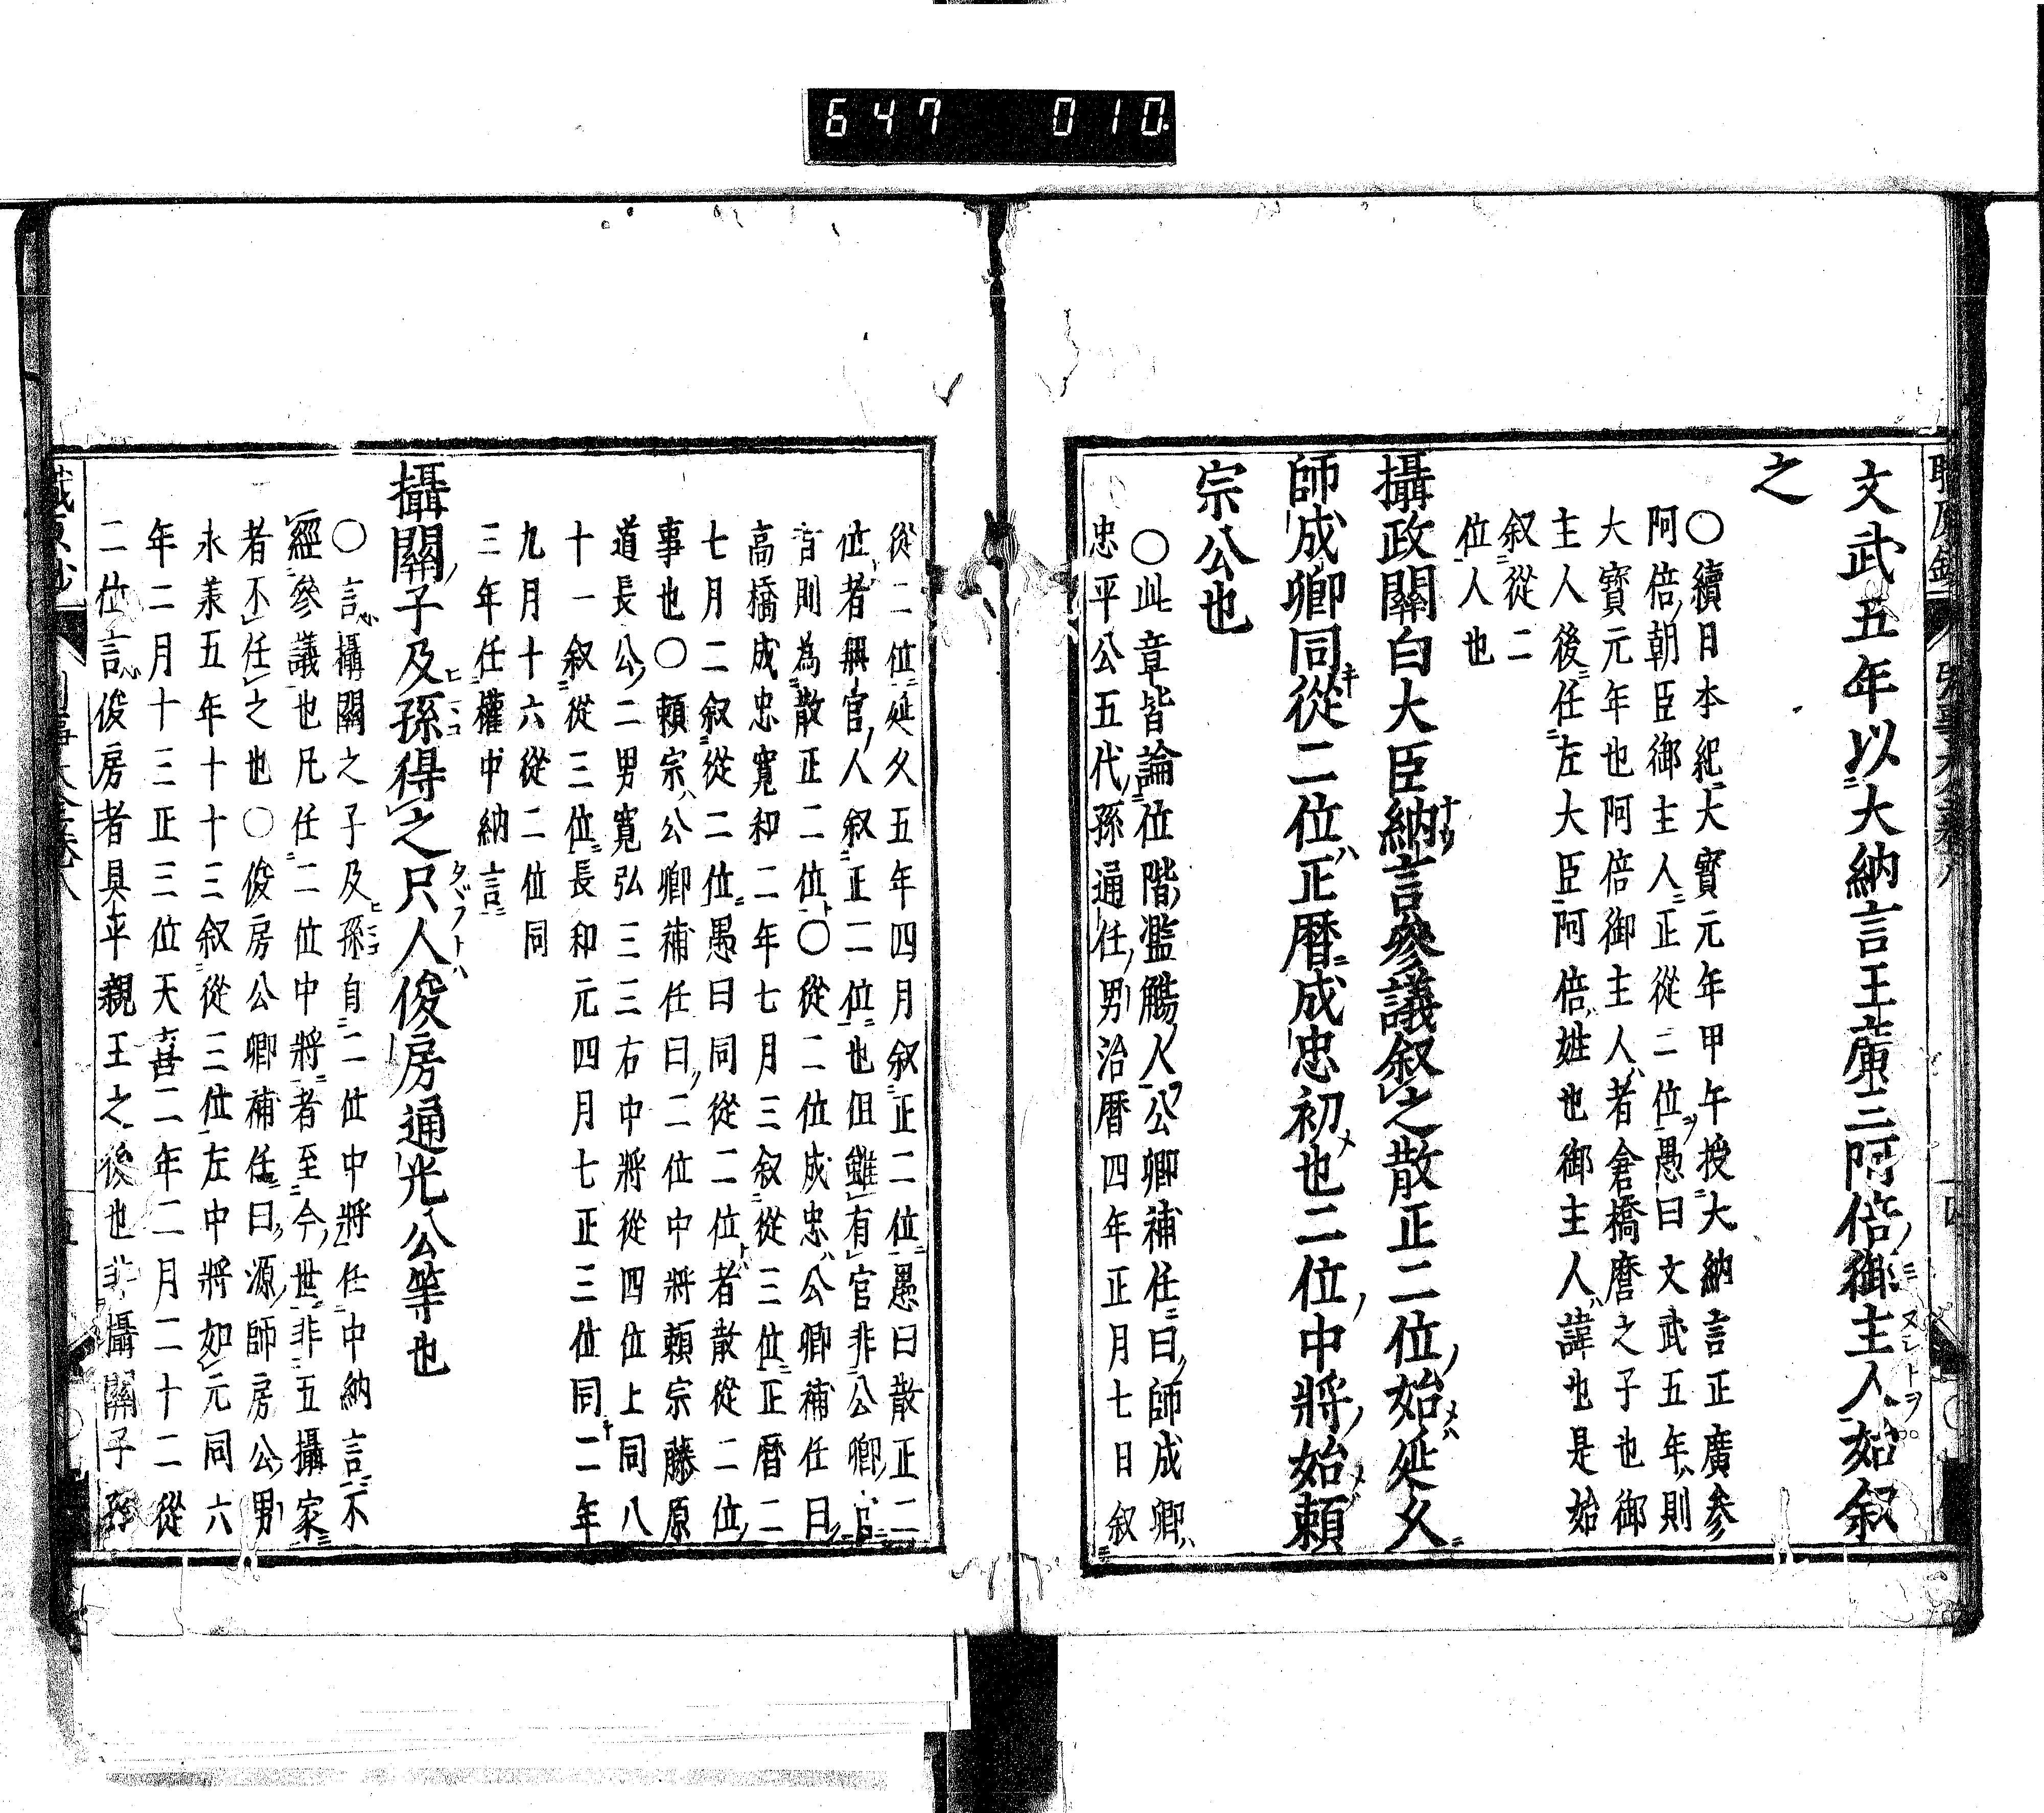 647 010
文武五年以大納言王廣三阿倍御主人始叙
之
〇續日本紀大寳元年甲午授大納言正廣參
阿倍朝臣御主人正從二位愚曰文武五年則
大寳元年也阿倍御主人者倉橋麿之子也御
主人後任左大臣阿倍姓也御主人諱也是始
叙從二
位人也
攝政關白大臣納言參議叙之散正二位始延久
師成卿同從二位正曆成忠初也二位中將始頼
宗公也
〇此章皆論位階濫觴人公卿補任曰師成卿
忠平公五代孫通任男治曆四年正月七日叙
從二位延久五年四月叙正二位愚曰散正二
位者無官人叙正二位也但雖有官非公卿官
者則為散正二位〇從二位成忠公卿補任曰
高橋成忠寛和二年七月三叙從三位正曆二
七月二叙從二位愚曰同從二位者散從二位
事也〇頼宗公卿補任曰二位中將頼宗藤原
道長公二男寛弘三三右中將從四位上同八
十一叙從三位長和元四月七正三位同二年
九月十六從二位同
三年任權中納言
攝關子及孫得之只人俊房通光公等也
〇言攝關之子及孫自二位中將任中納言不
經參議也凡任二位中將者至今世非五攝家
者不任之也〇俊房公卿補任曰源師房公男
永羕五年十十三叙從三位左中將如元同六
年二月十三正三位天喜二年二月二十二從
二位言俊房者具平親王之後也非攝關子孫